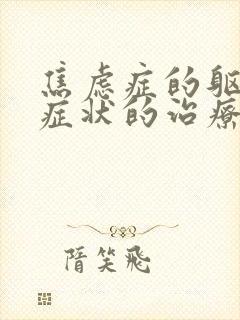 焦虑症的躯
症状的治疗
隋笑飞